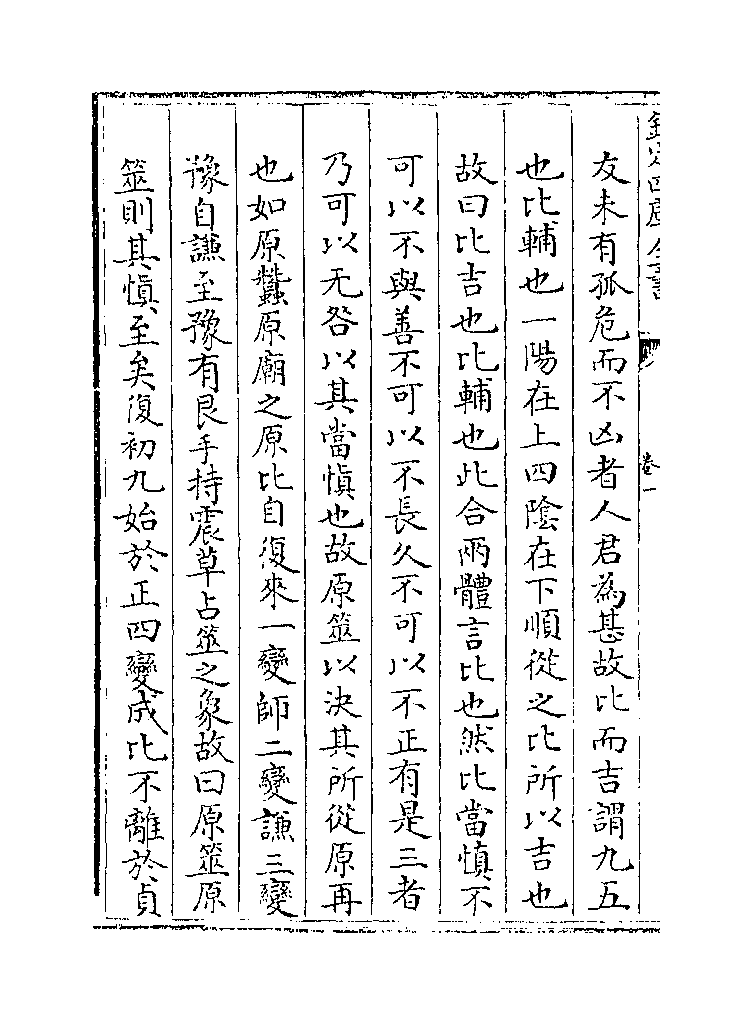 欽定四庫全書
卷一
友未有孤危而不凶者人君為甚故比而吉謂九五
也比輔也一陽在上四陰在下順從之比所以吉也
故曰比吉也比輔也此合兩體言比也然比當慎不
可以不與善不可以不長久不可以不正有是三者
乃可以无咎以其當慎也故原筮以决其所從原再
也如原蠶原廟之原比自復來一變師二變謙三變
豫自謙至豫有艮手持震草占筮之象故曰原筮原
筮則其慎至矣復初九始於正四變成比不離於貞